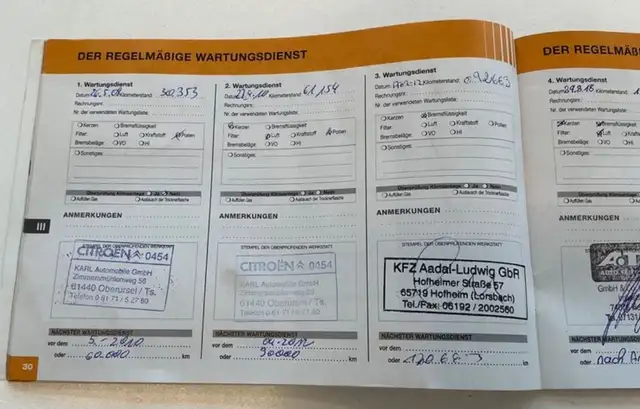 DER REGELMÄßIGE WARTUNGSDIENST
1. Wartungsdienst
Datum Kilometerstand: 353
Rechnungsnr.:
Nr. der verwendeten Wartungsliste:
Kerzen Bremsflüssigkeit
Filter: Luft Kraftstoff Pollen
Bremsbeläge: VO HI
Sonstiges:
Überprüfung Klimaanlage: Ja Nein
Auffüllen Gas Austausch der Trocknerflasche
ANMERKUNGEN
STEMPEL DER ÜBERPRÜFENDEN WERKSTATT
CITROËN 0454
KARL Automobile GmbH
Zimmersmühlenweg 56
61440 Oberursel / Ts.
Telefon 0 61 71 / 5 27 80
NÄCHSTER WARTUNGSDIENST
vor dem 5-2010
oder 60.000 km
2. Wartungsdienst
Datum Kilometerstand: 61.154
Rechnungsnr.:
Nr. der verwendeten Wartungsliste:
Kerzen Bremsflüssigkeit
Filter: Luft Kraftstoff Pollen
Bremsbeläge: VO HI
Sonstiges:
Überprüfung Klimaanlage: Ja Nein
Auffüllen Gas Austausch der Trocknerflasche
ANMERKUNGEN
STEMPEL DER ÜBERPRÜFENDEN WERKSTATT
CITROËN 0454
KARL Automobile GmbH
Zimmersmühlenweg 56
61440 Oberursel / Ts.
Telefon 0 61 71 / 5 27 80
NÄCHSTER WARTUNGSDIENST
vor dem 04-2012
oder 90000 km
3. Wartungsdienst
Datum Kilometerstand:
Rechnungsnr.:
Nr. der verwendeten Wartungsliste:
Kerzen Bremsflüssigkeit
Filter: Luft Kraftstoff Pollen
Bremsbeläge: VO HI
Sonstiges:
Überprüfung Klimaanlage: Ja Nein
Auffüllen Gas Austausch der Trocknerflasche
ANMERKUNGEN
STEMPEL DER ÜBERPRÜFENDEN WERKSTATT
KFZ Aadal-Ludwig GbR
Hofheimer Straße 57
65719 Hofheim (Lorsbach)
Tel./Fax: 06192 / 2002560
NÄCHSTER WARTUNGSDIENST
vor dem
oder km
III
30
DER REGELMÄ
4. Wartungsdienst
Datum 29.8.16 Kilometerstand: 1
Rechnungsnr.:
Nr. der verwendeten Wartungsliste:
Kerzen Bremsflüssigkeit
Filter: Luft
Bremsbeläge: VO HI
Sonstiges:
Überprüfung Klima
Auffüllen Gas
ANMERKUNGEN
STEMPEL DER
A.T
GmbH &
NÄCHSTER WARTUNGSD
vor dem
oder nach